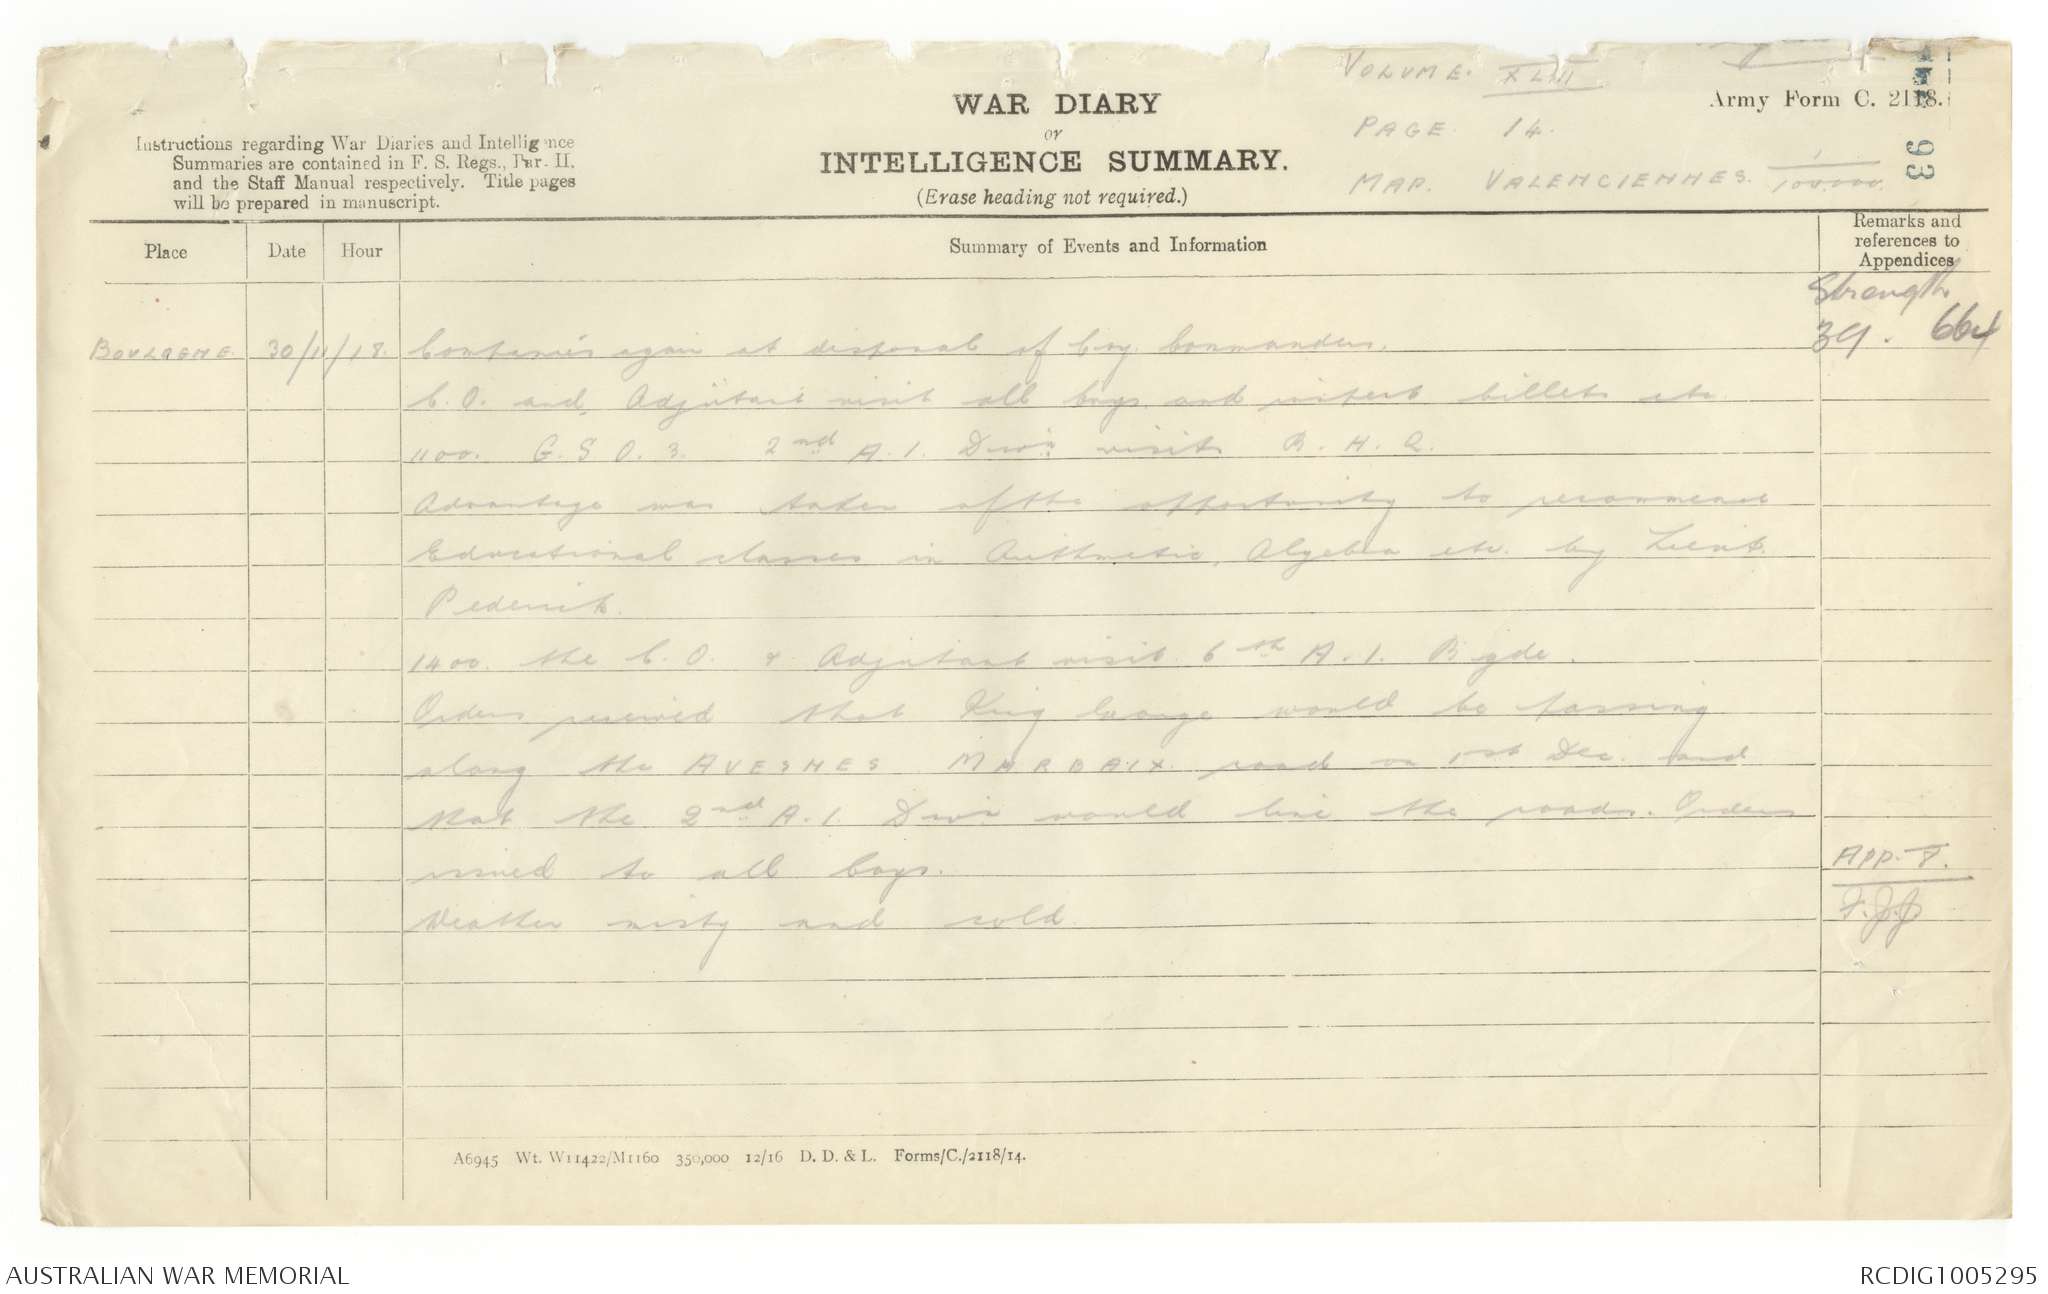 VOLUME. XLIII
WAR DIARY
or
INTELLIGENCE SUMMARY.
(Erase heading not required.)
Army Form C. 2118.
PAGE 14.
MAP. VALENCIENNES. 1/100.000.
93
Instructions regarding War Diaries and Intelligence
Summaries are contained in F. S. Regs., Part II.
and the Staff Manual respectively. Title pages
will be prepared in manuscript.
Place Date Hour Summary of Events and Information Remarks and references to Appendices
Strength
39. 664
BOULOGNE. 30/11/18. Companies again at disposal of Coy. Commanders.
C.O. and Adjutant visit all Coys and inspect billets etc.
1100. G.S.O.3. 2nd A.I. Divn visits B.H.Q.
Advantage was taken of the opportunity to recommence
Educational classes in Arithmetic, Algebra etc. by Lieut.
Pederick.
1400. the C.O. & Adjutant visit 6th A.I. Bgde.
Orders received that King George would be passing
along the AVESNES MARBAIX road on 1st Dec. and
that the 2nd A.I. Divn would line the roads. Orders
issued to all Coys.
App. 7.
Weather misty and cold.
F.J.J
A6945 Wt. W11422/M1160 350,000 12/16 D. D. & L. Forms/C./2118/14.
AUSTRALIAN WAR MEMORIAL
RCDIG1005295